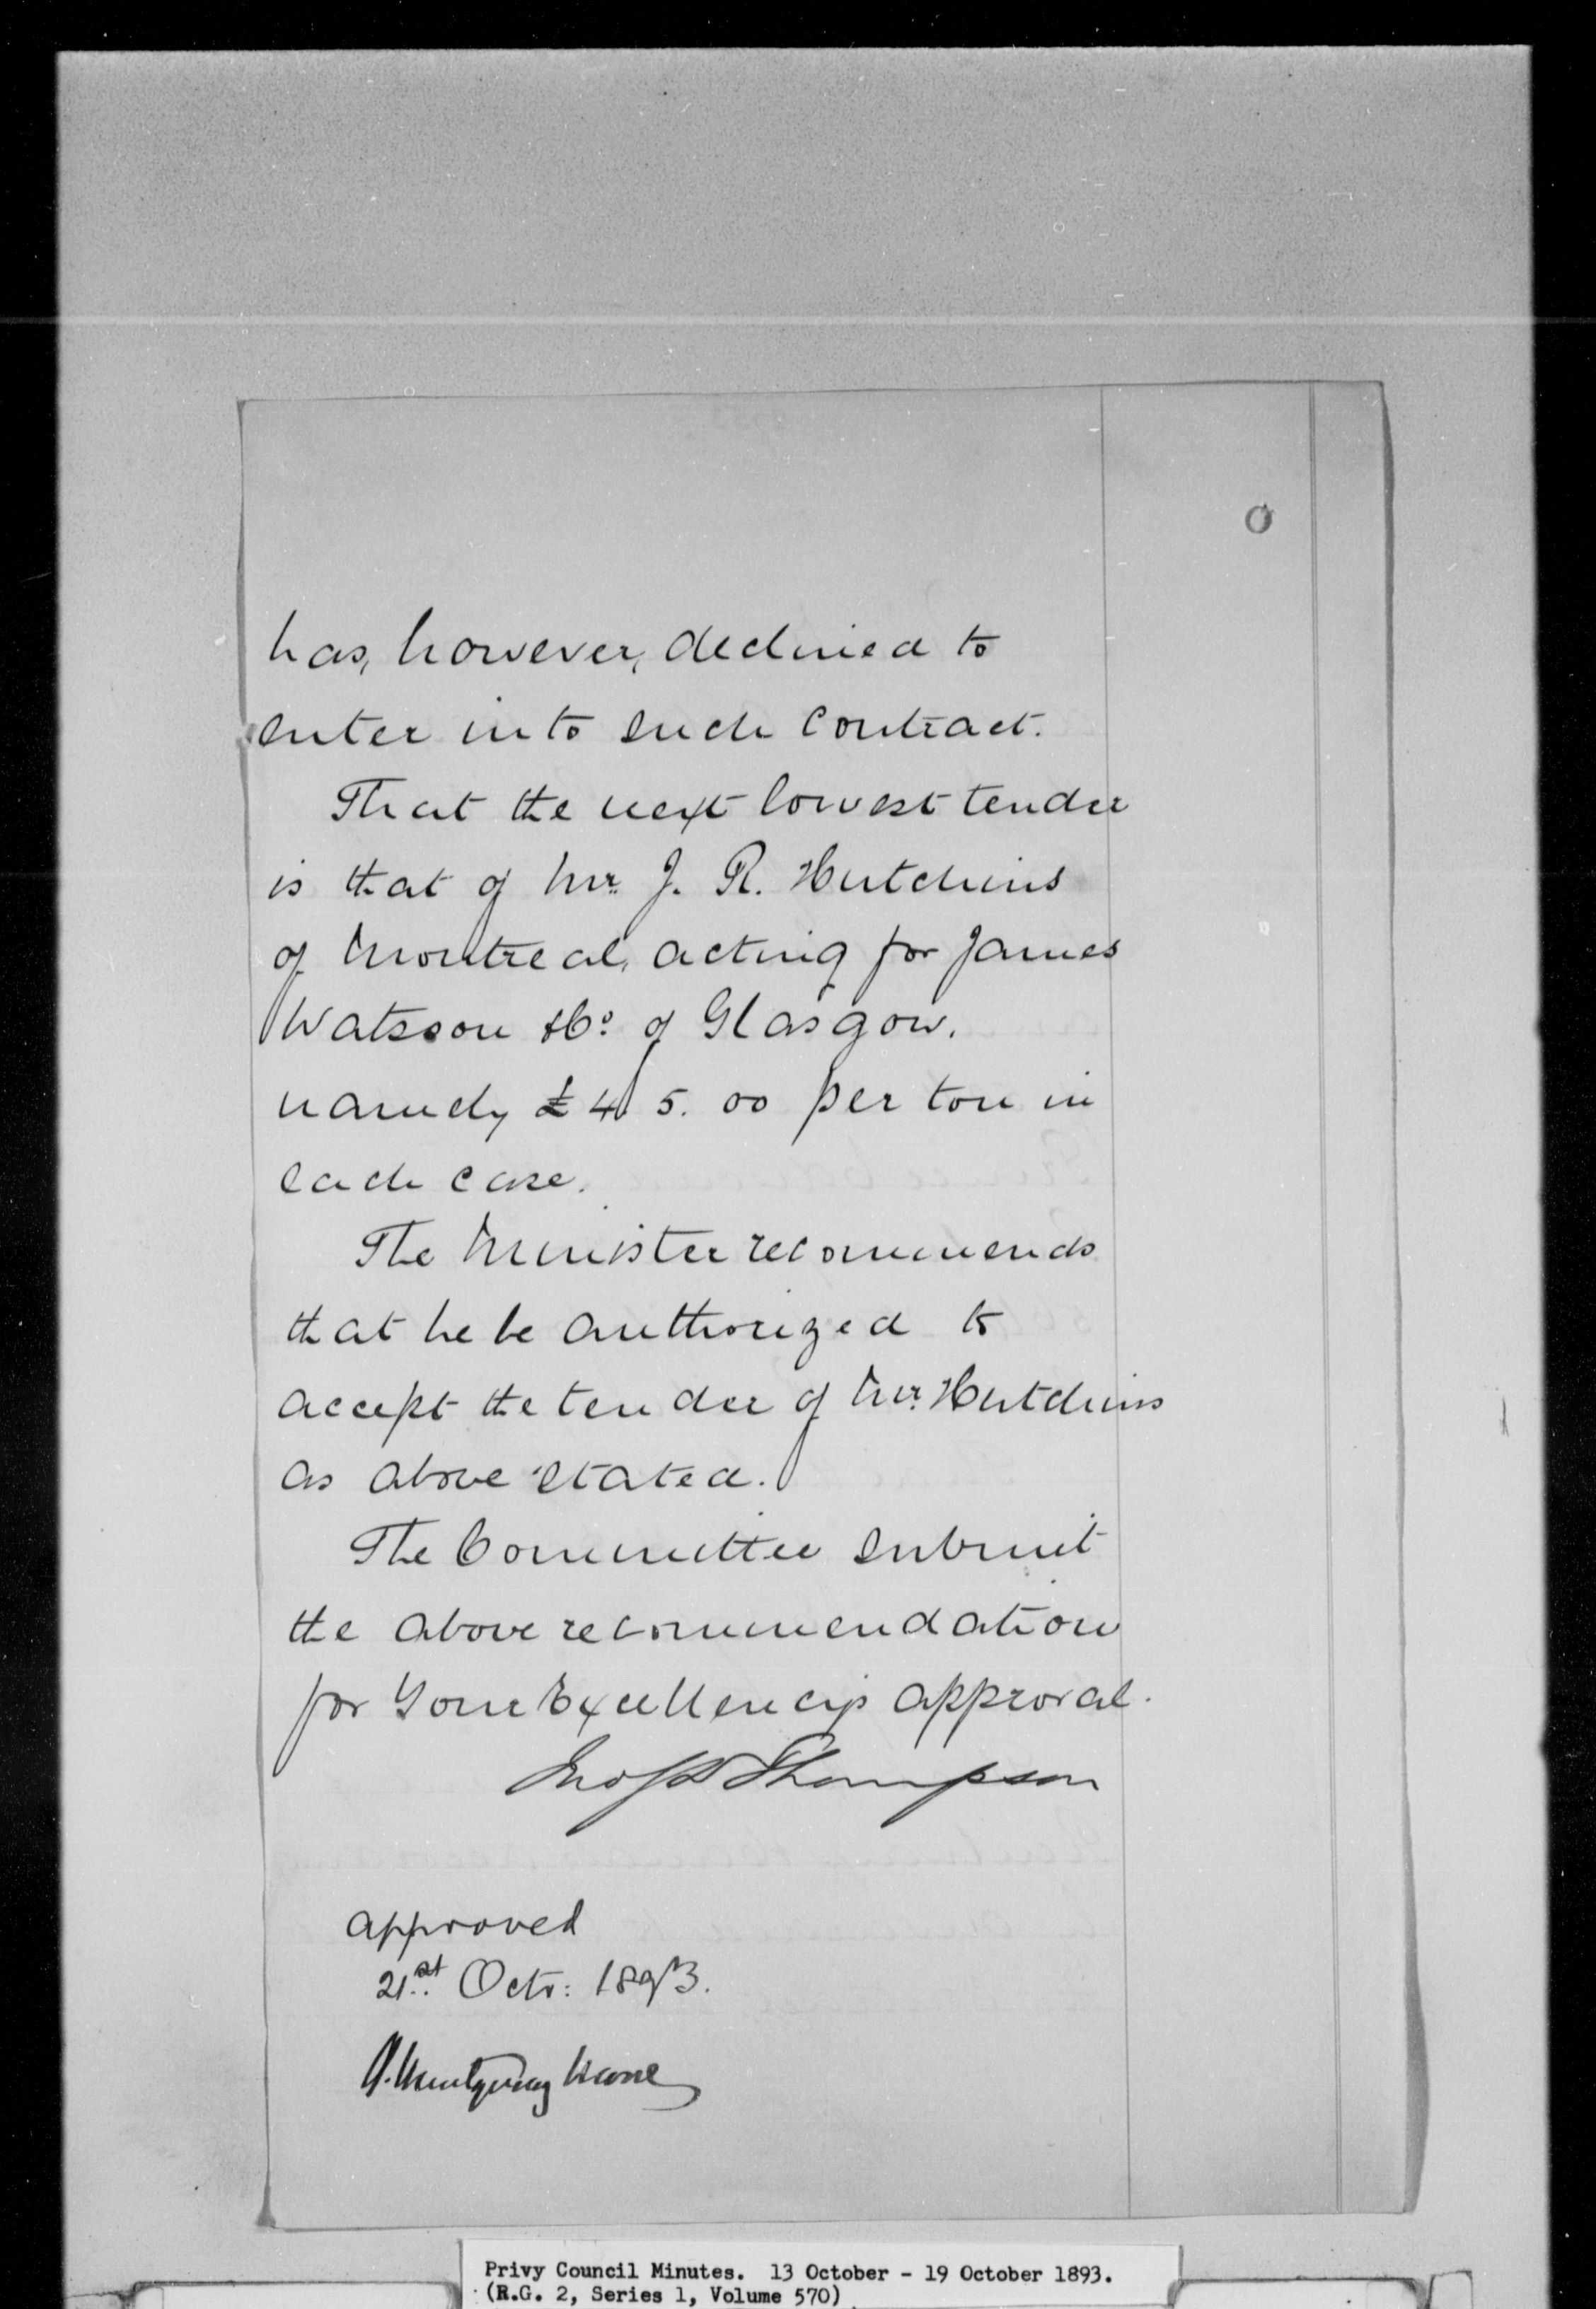 has, however, declined to
enter into such contract.
That the next lowest tender
is that of Mr. J. R. Hutchins
of Montreal, acting for James
Watson & Co. of Glasgow,
namely £4. 5. 00 per ton in
each case.
The Minister recommends
that he be authorized to
accept the tender of Mr. Hutchins
as above stated.
The Committee submit
the above recommendation
for Your Excellency's approval.
Jno S D Thompson
approved
21st Octr: 1893.
A. Montgomery Moore
Privy Council Minutes. 13 October - 19 October 1893.
(R.G. 2, Series 1, Volume 570)